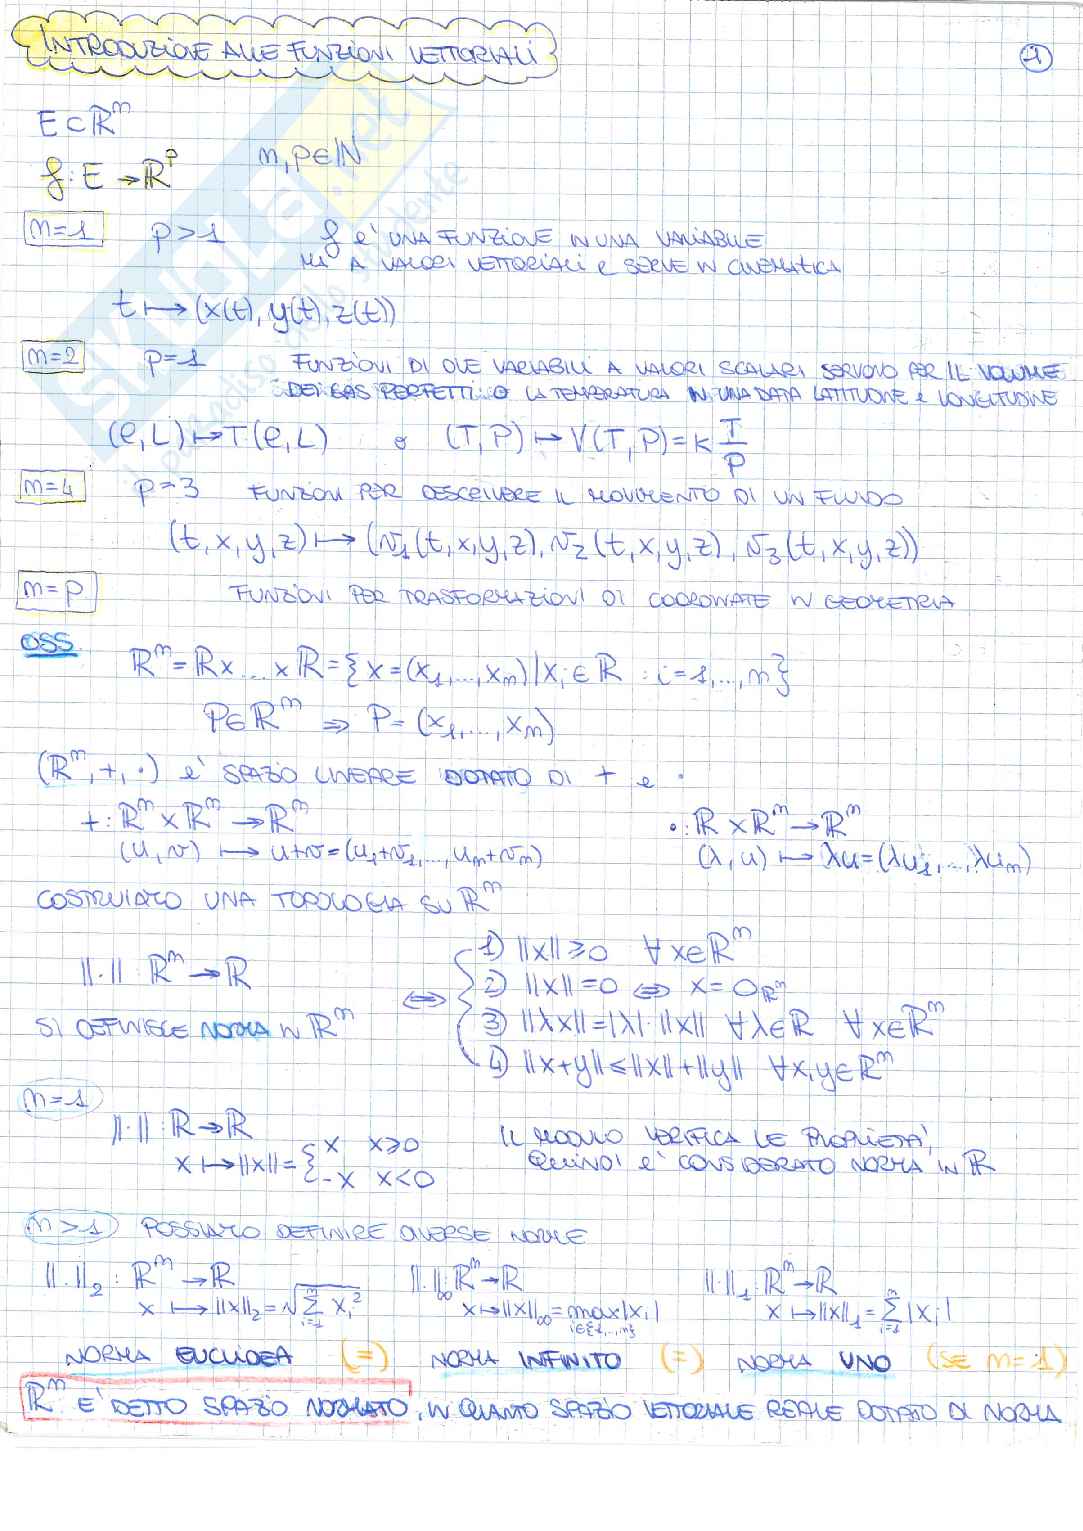 INTRODUZIONE ALLE FUNZIONI VETTORIALI
1
E ⊂ ℝⁿ
f: E → ℝᵖ    n, p ∈ ℕ
n=1    p>1    f è UNA FUNZIONE IN UNA VARIABILE
MA A VALORI VETTORIALI e SERVE IN CINEMATICA
t ↦ (x(t), y(t), z(t))
n=2    p=1    FUNZIONI DI DUE VARIABILI A VALORI SCALARI SERVONO PER IL VOLUME
DEI GAS PERFETTI O LA TEMPERATURA IN UNA DATA LATITUDINE e LONGITUDINE
(l, L) ↦ T(l, L)    o    (T, P) ↦ V(T, P) = K T/P
n=4    p=3    FUNZIONI PER DESCRIVERE IL MOVIMENTO DI UN FLUIDO
(t, x, y, z) ↦ (v₁(t, x, y, z), v₂(t, x, y, z), v₃(t, x, y, z))
n=p    FUNZIONI PER TRASFORMAZIONI DI COORDINATE IN GEOMETRIA
OSS
ℝⁿ = ℝ x ... x ℝ = { x = (x₁, ..., xₙ) | xᵢ ∈ ℝ : i = 1, ..., n }
P ∈ ℝⁿ ⇒ P = (x₁, ..., xₙ)
(ℝⁿ, +, ·) è SPAZIO LINEARE DOTATO DI + e ·
+ : ℝⁿ x ℝⁿ → ℝⁿ    · : ℝ x ℝⁿ → ℝⁿ
(u, v) ↦ u+v = (u₁+v₁, ..., uₙ+vₙ)    (λ, u) ↦ λu = (λu₁, ..., λuₙ)
COSTRUIAMO UNA TOPOLOGIA SU ℝⁿ
||·|| : ℝⁿ → ℝ
SI DEFINISCE NORMA IN ℝⁿ
⇔
1) ||x|| ≥ 0    ∀ x ∈ ℝⁿ
2) ||x|| = 0 ⇔ x = 0ℝⁿ
3) ||λx|| = |λ|·||x||    ∀ λ ∈ ℝ    ∀ x ∈ ℝⁿ
4) ||x+y|| ≤ ||x|| + ||y||    ∀ x, y ∈ ℝⁿ
n=1
||·|| : ℝ → ℝ
x ↦ ||x|| = { x    x ≥ 0
-x    x < 0
IL MODULO VERIFICA LE PROPRIETÀ,
QUINDI è CONSIDERATO NORMA IN ℝ
n>1    POSSIAMO DEFINIRE DIVERSE NORME
||·||₂ : ℝⁿ → ℝ    ||·||∞ : ℝⁿ → ℝ    ||·||₁ : ℝⁿ → ℝ
x ↦ ||x||₂ = √(Σⁿᵢ₌₁ xᵢ²)    x ↦ ||x||∞ = max |xᵢ| i∈{1,...,n}    x ↦ ||x||₁ = Σⁿᵢ₌₁ |xᵢ|
NORMA EUCLIDEA (=) NORMA INFINITO (=) NORMA UNO (SE n=1)
ℝⁿ È DETTO SPAZIO NORMATO, IN QUANTO SPAZIO VETTORIALE REALE DOTATO DI NORMA